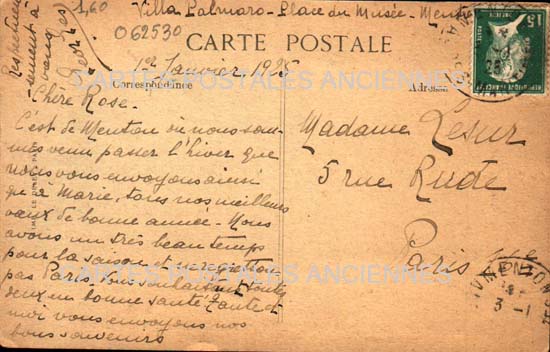 1,60
Villa Palmaro - Place du Musée - Menton
062530
CARTE POSTALE
1er Janvier 1925
Correspondance
Adresse
Chère Rose.
C'est de Menton où nous som-
mes venu passer l'hiver que
nous vous envoyons ainsi
qu'à Marie, tous nos meilleurs
vœux de bonne année. Nous
avons un très beau temps
pour la saison et ne regrettons
pas Paris. Vous souhaitons toutes
deux en bonne santé Tante et
moi vous envoyons nos
bons souvenirs
Respectueu-
sement à
vous
Madame Lesur
5 rue Rude
Paris
15
REPUBLIQUE FRANÇAISE
CARTES POSTALES ANCIENNES
CARTES POSTALES ANCIENNES